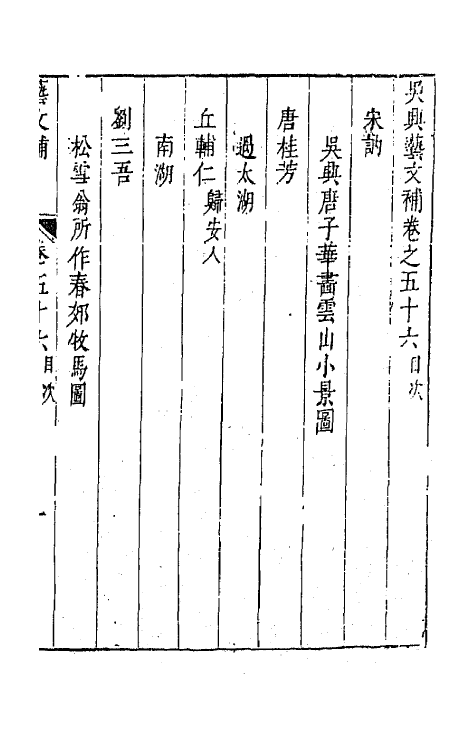 吳興藝文補卷之五十六目次
宋訥
吳興唐子華畫雲山小景圖
唐桂芳
過太湖
丘輔仁歸安人
南湖
劉三吾
松雪翁所作春郊牧馬圖
藝文補 卷五十六目次 一